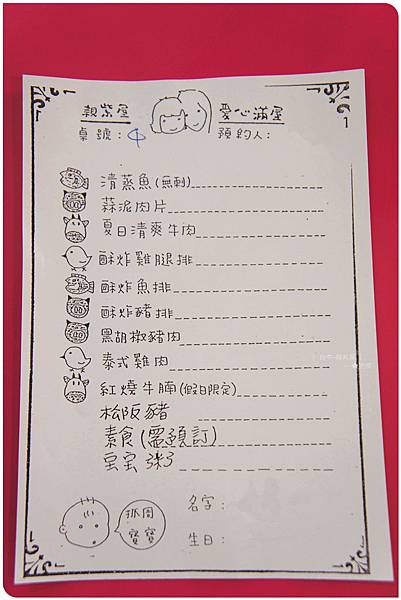 親紫屋 愛心滿屋
桌號：4 預約人：
清蒸魚(無刺)
蒜泥肉片
夏日清爽牛肉
酥炸雞腿排
酥炸魚排
酥炸豬排
黑胡椒豬肉
泰式雞肉
紅燒牛腩(假日限定)
松阪豬
素食(需預訂)
宝宝粥
抓周寶寶
名字：
生日：